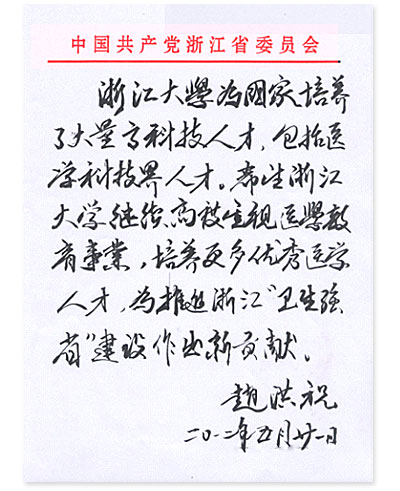 中国共产党浙江省委员会
浙江大學为國家培养
了大量高科技人才，包括医
学科技界人才。希望浙江
大学继续高度重视医學教
育事業，培养更多优秀医学
人才，为推进浙江“卫生强
省”建设作出新贡献。
趙洪祝
二〇一二年五月廿一日